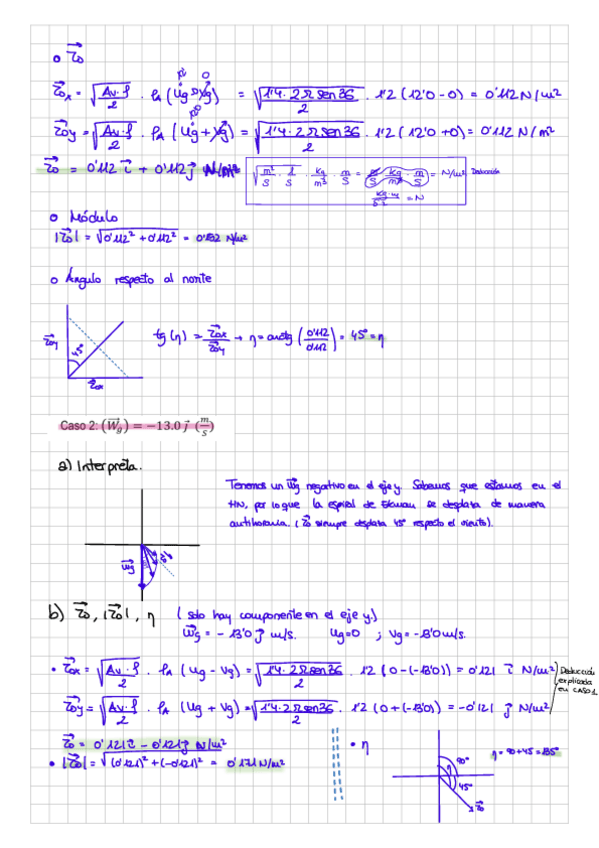 o τ⃗o
τ⃗ox = √(Av·f)/2 · ρA (Ug - Vg) = √(1'4·2Ω sen36)/2 · 1'2 (12'0 - 0) = 0'112 N/m²
τ⃗oy = √(Av·f)/2 · ρA (Ug + Vg) = √(1'4·2Ω sen36)/2 · 1'2 (12'0 + 0) = 0'112 N/m²
τ⃗o = 0'112 i⃗ + 0'112 j⃗ N/m²
√(m²/s · 1/s) · kg/m³ · m/s = m/s · kg/m³ · m/s = N/m² Deducción
kg·m/s² = N
o Módulo
|τ⃗o| = √(0'112² + 0'112²) = 0'182 N/m²
o Ángulo respecto al norte
τ⃗oy
45°
τ⃗ox
tg(η) = τ⃗ox/τ⃗oy → η = arctg (0'112/0'112) = 45° = η
Caso 2: (W⃗g) = −13.0 j⃗ (m/s)
a) Interpreta.
Tenemos un W⃗g negativo en el eje y. Sabemos que estamos en el
HN, por lo que la espiral de Ekman se desplaza de manera
antihoraria. (τ⃗o siempre desplaza 45° respecto el viento).
W⃗g
τ⃗o
b) τ⃗o, |τ⃗o|, η (solo hay componente en el eje y)
W⃗g = - 13'0 j⃗ m/s. Ug=0 ; Vg = -13'0 m/s.
• τ⃗ox = √(Av·f)/2 · ρA (Ug - Vg) = √(1'4·2Ω sen36)/2 · 1'2 (0 - (-13'0)) = 0'121 i⃗ N/m²
Deducción explicada en CASO 1
τ⃗oy = √(Av·f)/2 · ρA (Ug + Vg) = √(1'4·2Ω sen36)/2 · 1'2 (0 + (-13'0)) = -0'121 j⃗ N/m²
τ⃗o = 0'121 i⃗ - 0'121 j⃗ N/m²
• |τ⃗o| = √((0'121)² + (-0'121)²) = 0'171 N/m²
• η
90°
45°
τ⃗o
η = 90+45 = 135°